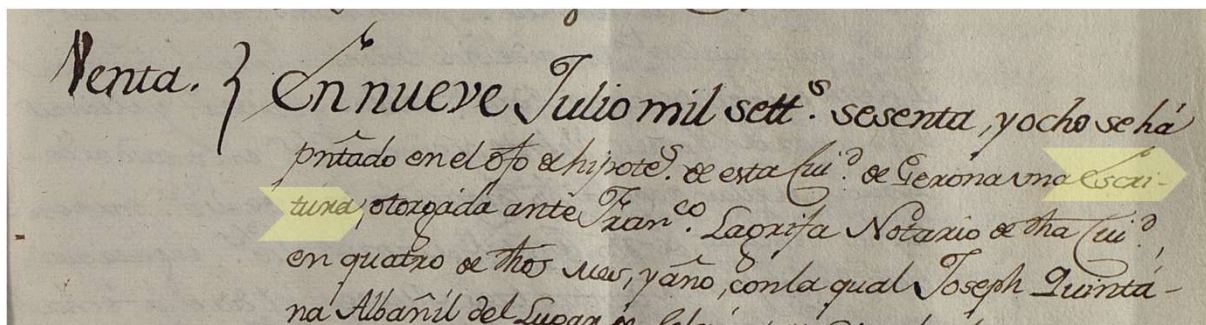 Venta. } En nueve Julio mil sett.s sesenta, y ocho se há
pñtado en el ofo de hipote.s de esta Ciu.d de Gerona una escri-
tura, otorgada ante Fran.co Lagrifa Notario de dha Ciu.d,
en quatro de dhos mes, y año, con la qual Joseph Quintá-
na Albañil del Lugar